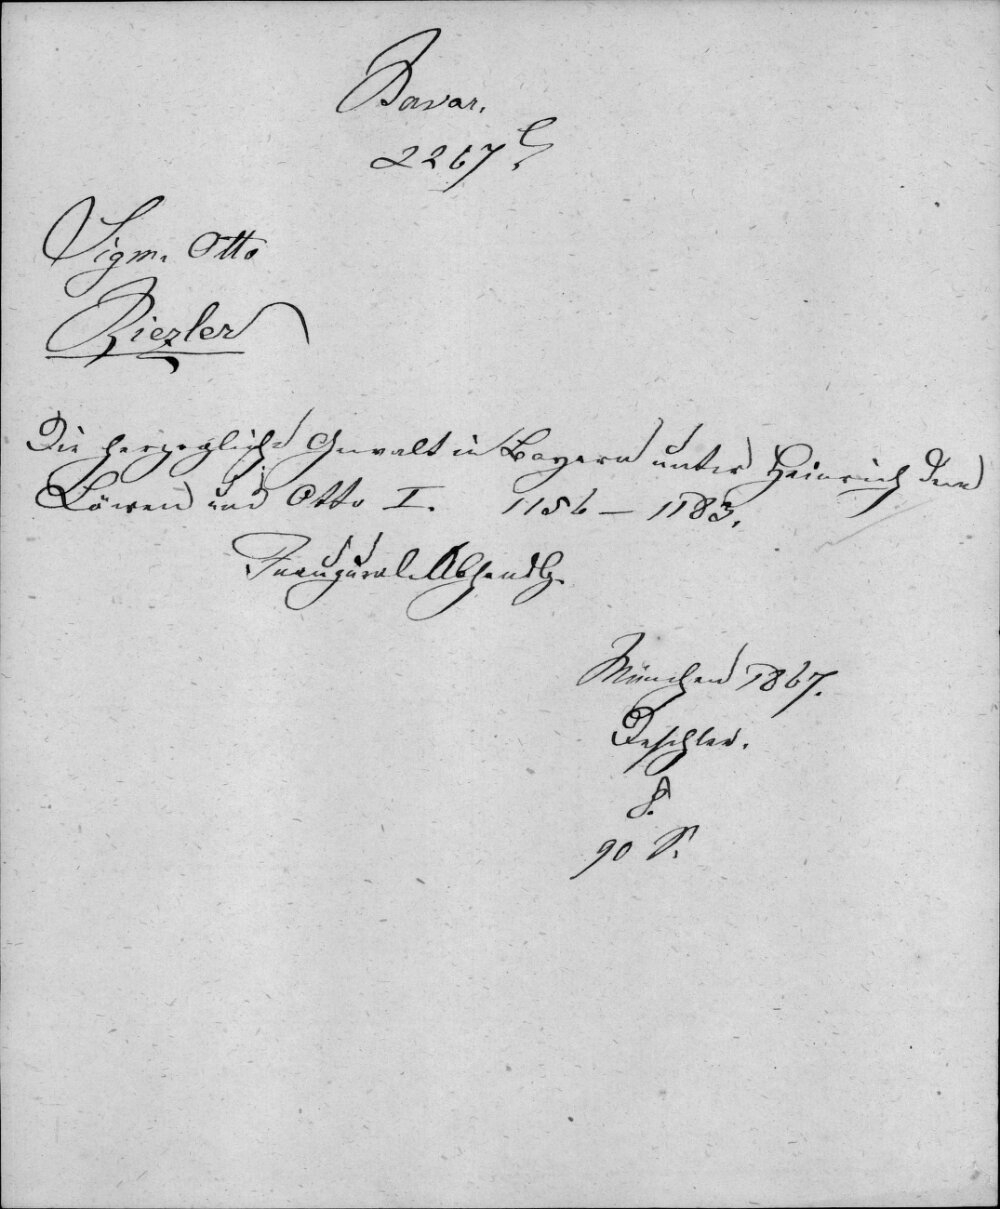 Bavar.
2267
Sigm. Otto
Riezler
Die herzogliche Gewalt in Bayern unter Heinrich dem
Löwen und Otto I. 1156 – 1183.
Inaugural-Abhandlg.
München 1867.
Deschler.
8.
90 S.